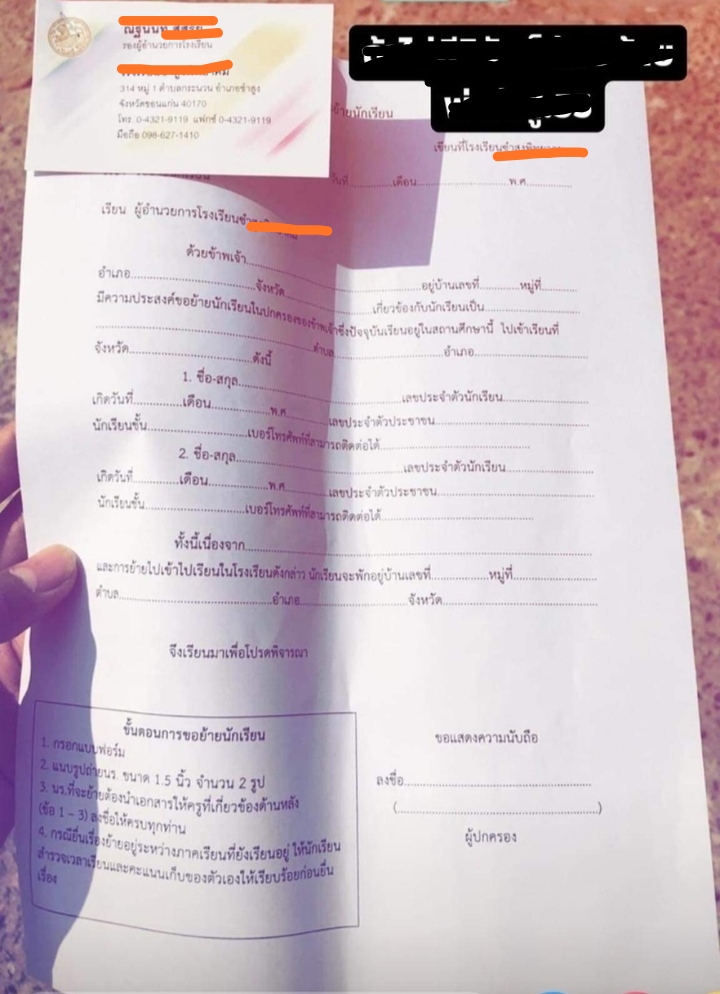 รองผู้อำนวยการโรงเรียน
314 หมู่ 1 ตำบลกระนวน อำเภอซำสูง
จังหวัดขอนแก่น 40170
โทร. 0-4321-9119 แฟกซ์ 0-4321-9119
มือถือ 098-627-1410
ย้ายนักเรียน
เขียนที่โรงเรียน
วันที่..........เดือน..............................พ.ศ.............
เรียน ผู้อำนวยการโรงเรียน
ด้วยข้าพเจ้า........................................อยู่บ้านเลขที่..........หมู่ที่..........
อำเภอ..............................จังหวัด..............................เกี่ยวข้องกับนักเรียนเป็น....................
มีความประสงค์ขอย้ายนักเรียนในปกครองของข้าพเจ้าซึ่งปัจจุบันเรียนอยู่ในสถานศึกษานี้ ไปเข้าเรียนที่
..................................................ตำบล..............................อำเภอ..............................
จังหวัด..............................ดังนี้
1. ชื่อ-สกุล........................................เลขประจำตัวนักเรียน....................
เกิดวันที่..........เดือน...............พ.ศ...........เลขประจำตัวประชาชน..............................
นักเรียนชั้น....................เบอร์โทรศัพท์ที่สามารถติดต่อได้..............................
2. ชื่อ-สกุล........................................เลขประจำตัวนักเรียน....................
เกิดวันที่..........เดือน...............พ.ศ...........เลขประจำตัวประชาชน..............................
นักเรียนชั้น....................เบอร์โทรศัพท์ที่สามารถติดต่อได้..............................
ทั้งนี้เนื่องจาก............................................................
และการย้ายไปเข้าไปเรียนในโรงเรียนดังกล่าว นักเรียนจะพักอยู่บ้านเลขที่...............หมู่ที่....................
ตำบล..............................อำเภอ....................จังหวัด..............................
จึงเรียนมาเพื่อโปรดพิจารณา
ขั้นตอนการขอย้ายนักเรียน
1. กรอกแบบฟอร์ม
2. แนบรูปถ่ายนร. ขนาด 1.5 นิ้ว จำนวน 2 รูป
3. นร.ที่จะย้ายต้องนำเอกสารให้ครูที่เกี่ยวข้องด้านหลัง
(ข้อ 1 – 3) ลงชื่อให้ครบทุกท่าน
4. กรณียื่นเรื่องย้ายอยู่ระหว่างภาคเรียนที่ยังเรียนอยู่ ให้นักเรียน
สำรวจเวลาเรียนและคะแนนเก็บของตัวเองให้เรียบร้อยก่อนยื่น
เรื่อง
ขอแสดงความนับถือ
ลงชื่อ........................................
(........................................)
ผู้ปกครอง